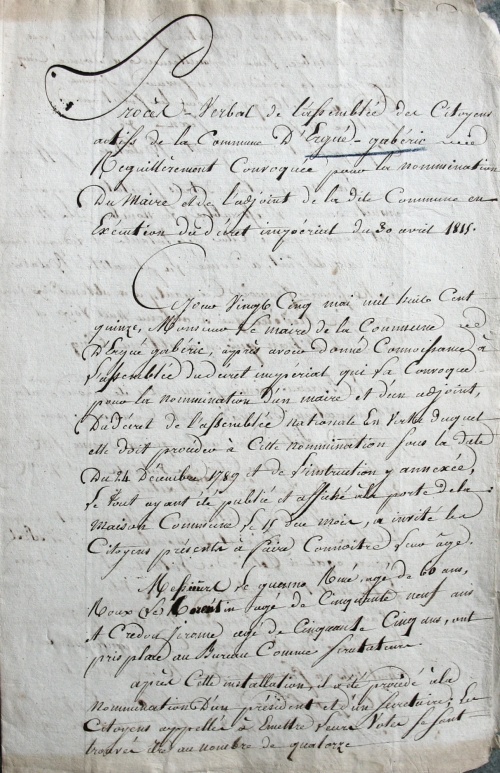 Procès-Verbal de l'assemblée des Citoyens
actifs de la Commune D'Ergué-gabéric
Reguillèrement Convoquée pour la nommination
Du Maire et de l'adjoint de la dite Commune en
Execution du décret impérial du 30 avril 1815.
Ce jour Vingt Cinq mai mil huit Cent
quinze, Monsieur Le maire de la Commune
D'Ergué gabéric, après avoir donné Connoissance à
L'assemblée du décret impérial qui la Convoque
pour la nommination d'un maire et d'un adjoint,
Du décret de l'assemblée nationale En Vertu duquel
elle doit procéder à Cette nommination sous la date
Du 24 Décembre 1789 et de l'instruction y annexée,
Le tout ayant été publié et affiché à la porte de la
Maison Commune le 15 du mois, a invité les
Citoyens présents à faire Connoitre leur âge.
Messieurs Le quesne René, agé de 60 ans,
Roux agé de Cinquante neuf ans
et Credou Jerome agé de Cinquante Cinq ans, ont
pris place au Bureau Comme Scrutateurs
après Cette installation, il a été procédé à la
nommination D'un président et d'un Secretaire, Les
Citoyens appellés à Emettre leurs Votes se sont
trouvés être au nombre de quatorze